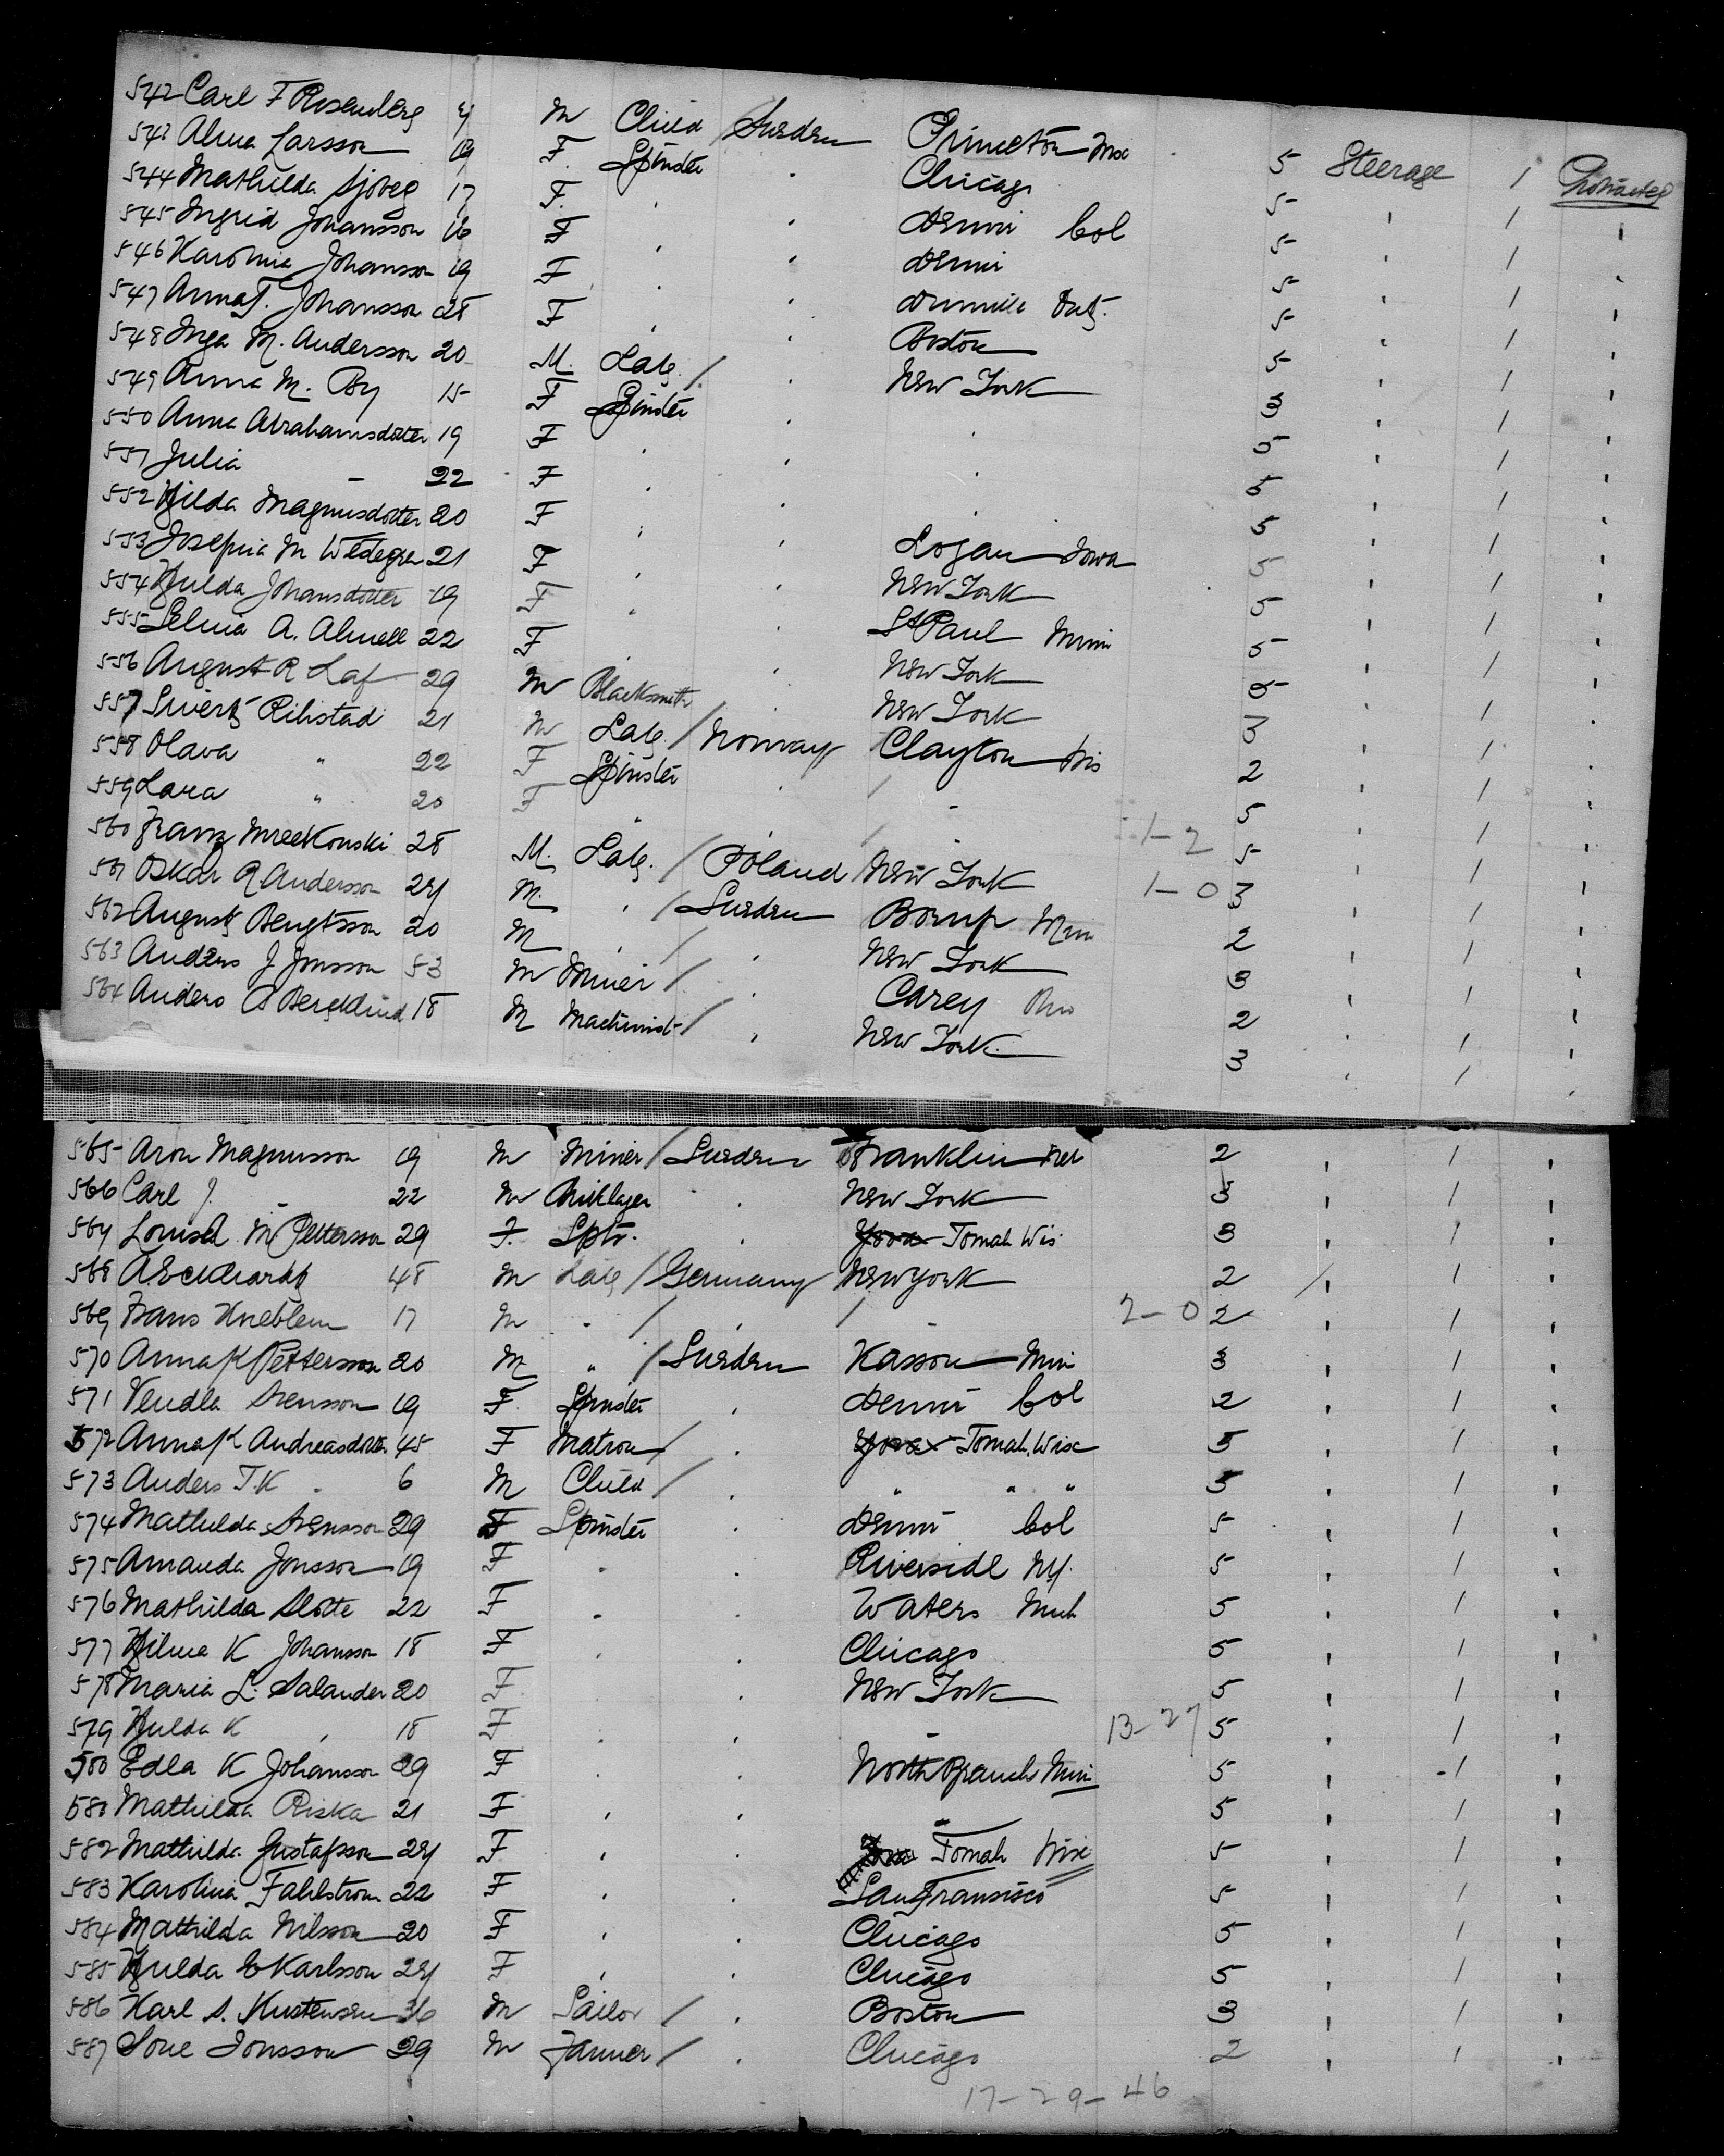 542 Carl F Rosenberg 4 M Child / Sweden Princeton 5 Steerage 1
543 Alma Larsson 19 F. Spinster " Chicago 5 " 1 "
544 Mathilda Sjoberg 17 F. " " Denver Col 5 " 1 "
545 Ingrid Johansson 16 F " " Denver 5 " 1 "
546 Karolina Johansson 19 F " " 5 " 1 "
547 Anna J. Johansson 28 F " " Boston 5 " 1 "
548 Inga M. Andersson 20 M. Lab. / " New York 3 " 1 "
549 Anna M. By 15 F Spinster " " 5 " 1 "
550 Anna Abrahamsdotter 19 F " " " 5 " 1 "
551 Julia - 22 F " " " 5 " 1 "
552 Hilda Magnusdotter 20 F " " Logan Iowa 5 " 1 "
553 Josefina M 21 F " " New York 5 " 1 "
554 Hulda Johansdotter 19 F " " St Paul Minn 5 " 1 "
555 Selma A. Almell 22 F " " New York 5 " 1 "
556 August R Laf 29 M Blacksmith " New York 3 " 1 "
557 Rilistad 21 M Lab. / Norway Clayton Wis 2 " 1 "
558 Olava " 22 F Spinster " / " 5 " 1 "
559 Lara " 20 F " " " 1-2 5 " 1 "
560 Franz 28 M. Lab. / Poland / New York 1-0 3 " 1 "
561 Oskar R Andersson 24 M. " / Sweden Borup Minn 2 " 1 "
562 August Bengtsson 20 M " / " New York 3 " 1 "
563 Anders J Jonsson 53 M Miner / " Carey 2 " 1 "
564 Anders 18 M Machinist / " New York. 3 " 1 "
565 Aron Magnusson 19 M Miner / Sweden Franklin 2 " 1 "
566 Carl J. - 22 M " New York 3 " 1 "
567 Louisa M Pettersson 29 F. Sptr. " Tomah Wis 3 " 1 "
568 A Eckhardt 48 M Lab / Germany New York 2 " 1 "
569 Frans Kneblem 17 M " / " / " 2-0 2 " 1 "
570 Anna K Pettersson 20 M " / Sweden Kasson Minn 3 " 1 "
571 Vendla Svensson 19 F. Spinster " Denver Col 2 " 1 "
572 Anna K Andreasdotter 45 F Matron / " Tomah. Wisc 5 " 1 "
573 Anders T. K " 6 M Child / " " " " 5 " 1 "
574 Mathilda Svensson 29 F Spinster " Denver Col 5 " 1 "
575 Amanda Jonsson 19 F " " Riverside NY. 5 " 1 "
576 Mathilda Slotte 22 F " " Waters Mich 5 " 1 "
577 Hilma K Johansson 18 F " " Chicago 5 " 1 "
578 Maria L. Salander 20 F " New York 5 " 1 "
579 Hulda K " 18 F " " " 13-27 5 " 1 "
580 Edla K Johansson 29 F " " North Branch Minn 5 " 1 "
580 Mathilda Riska 21 F " " " 5 " 1 "
582 Mathilda Gustafsson 24 F " " Tomah Wisc 5 " 1 "
583 Karolina Fahlstrom 22 F " " San Fransisco 5 " 1 "
584 Mathilda Nilsson 20 F " " Chicago 5 " 1 "
585 Hulda E Karlsson 24 F " " Chicago 5 " 1 "
586 Karl A. Kustensen 36 M Sailor / " Boston 3 " 1 "
587 Sone Jonsson 29 M Farmer / " Chicago 2 " 1 "
17-29-46